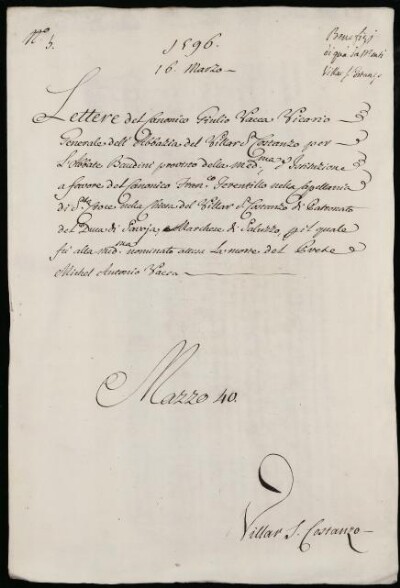 N.º 5.
Benefizj
di quà da Monti
Villar S. Costanzo
1596.
16. Marzo
Lettere del Canonico Giulio Vacca Vicario
Generale dell'Abbazia del Villar S. Costanzo per
l'Abbate Bandini provisto della med.ma d'Instituzione
a favore del Canonico Fran.co Ferentillo nella Capellania
di S.ta Croce nella Chiesa del Villar S. Costanzo di Patronato
del Duca di Savoja, e Marchese di Saluzzo, per il quale
fù alla med.ma nominato attesa la morte del Prete
Michel Antonio Vacca
Mazzo 40.
Villar S. Costanzo